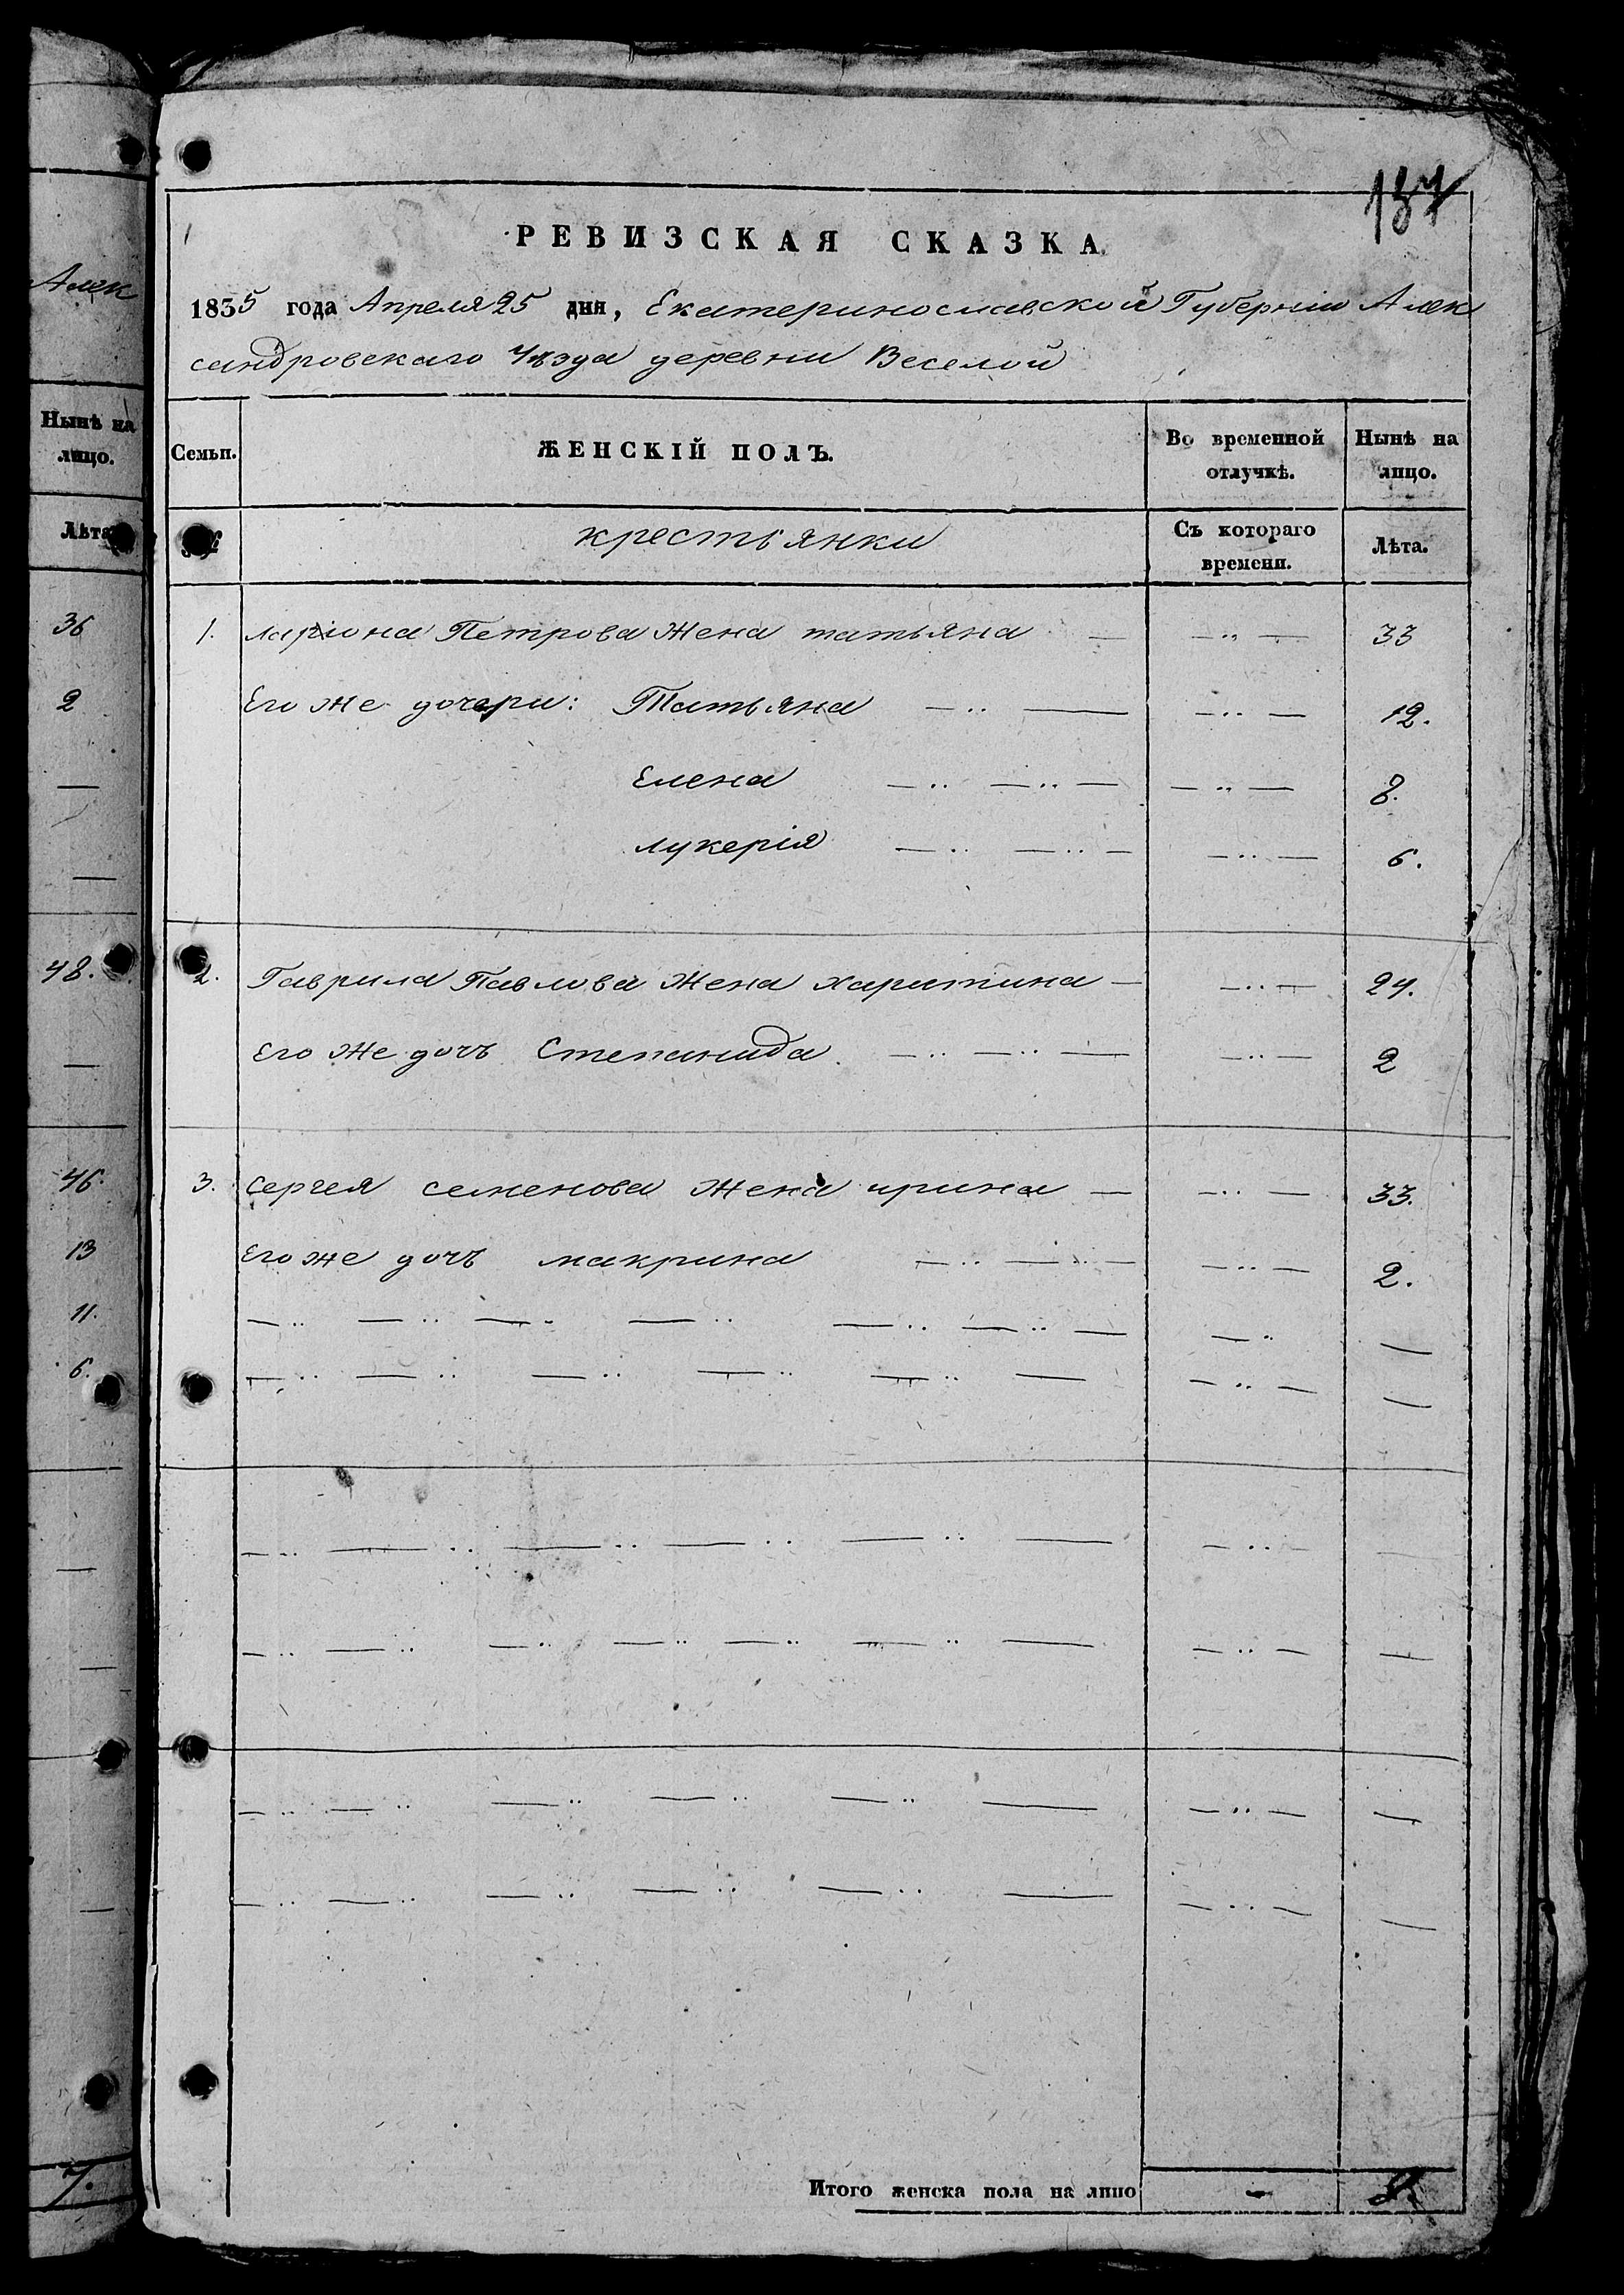 Алек
Нынѣ на
лицо.
Лѣта
36
2
48.
46
13
11.
6.
7.
137
РЕВИЗСКАЯ СКАЗКА
1835 года Апреля 25 дня, Екатеринославской Губернии Алек
сандровскаго Уѣзда деревни Веселой
Семьи. ЖЕНСКІЙ ПОЛЪ. Во временной отлучкѣ. Нынѣ на лицо.
крестьянки Съ котораго времени. Лѣта.
1. лариона Петрова Жена татьяна — — „ — 33
Его же дочери: Татьяна — „ — — „ — 12.
Елена — „ — „ — — „ — 8.
лукерія — „ — „ — — „ — 6.
2. Гаврила Павлова Жена харитина — — „ — 24.
Его же дочь Степанида. — „ — „ — — „ — 2
3. сергея семенова Жена ирина — — „ — 33.
Его же дочь макрина — „ — „ — — „ — 2.
Итого женска пола на лицо -